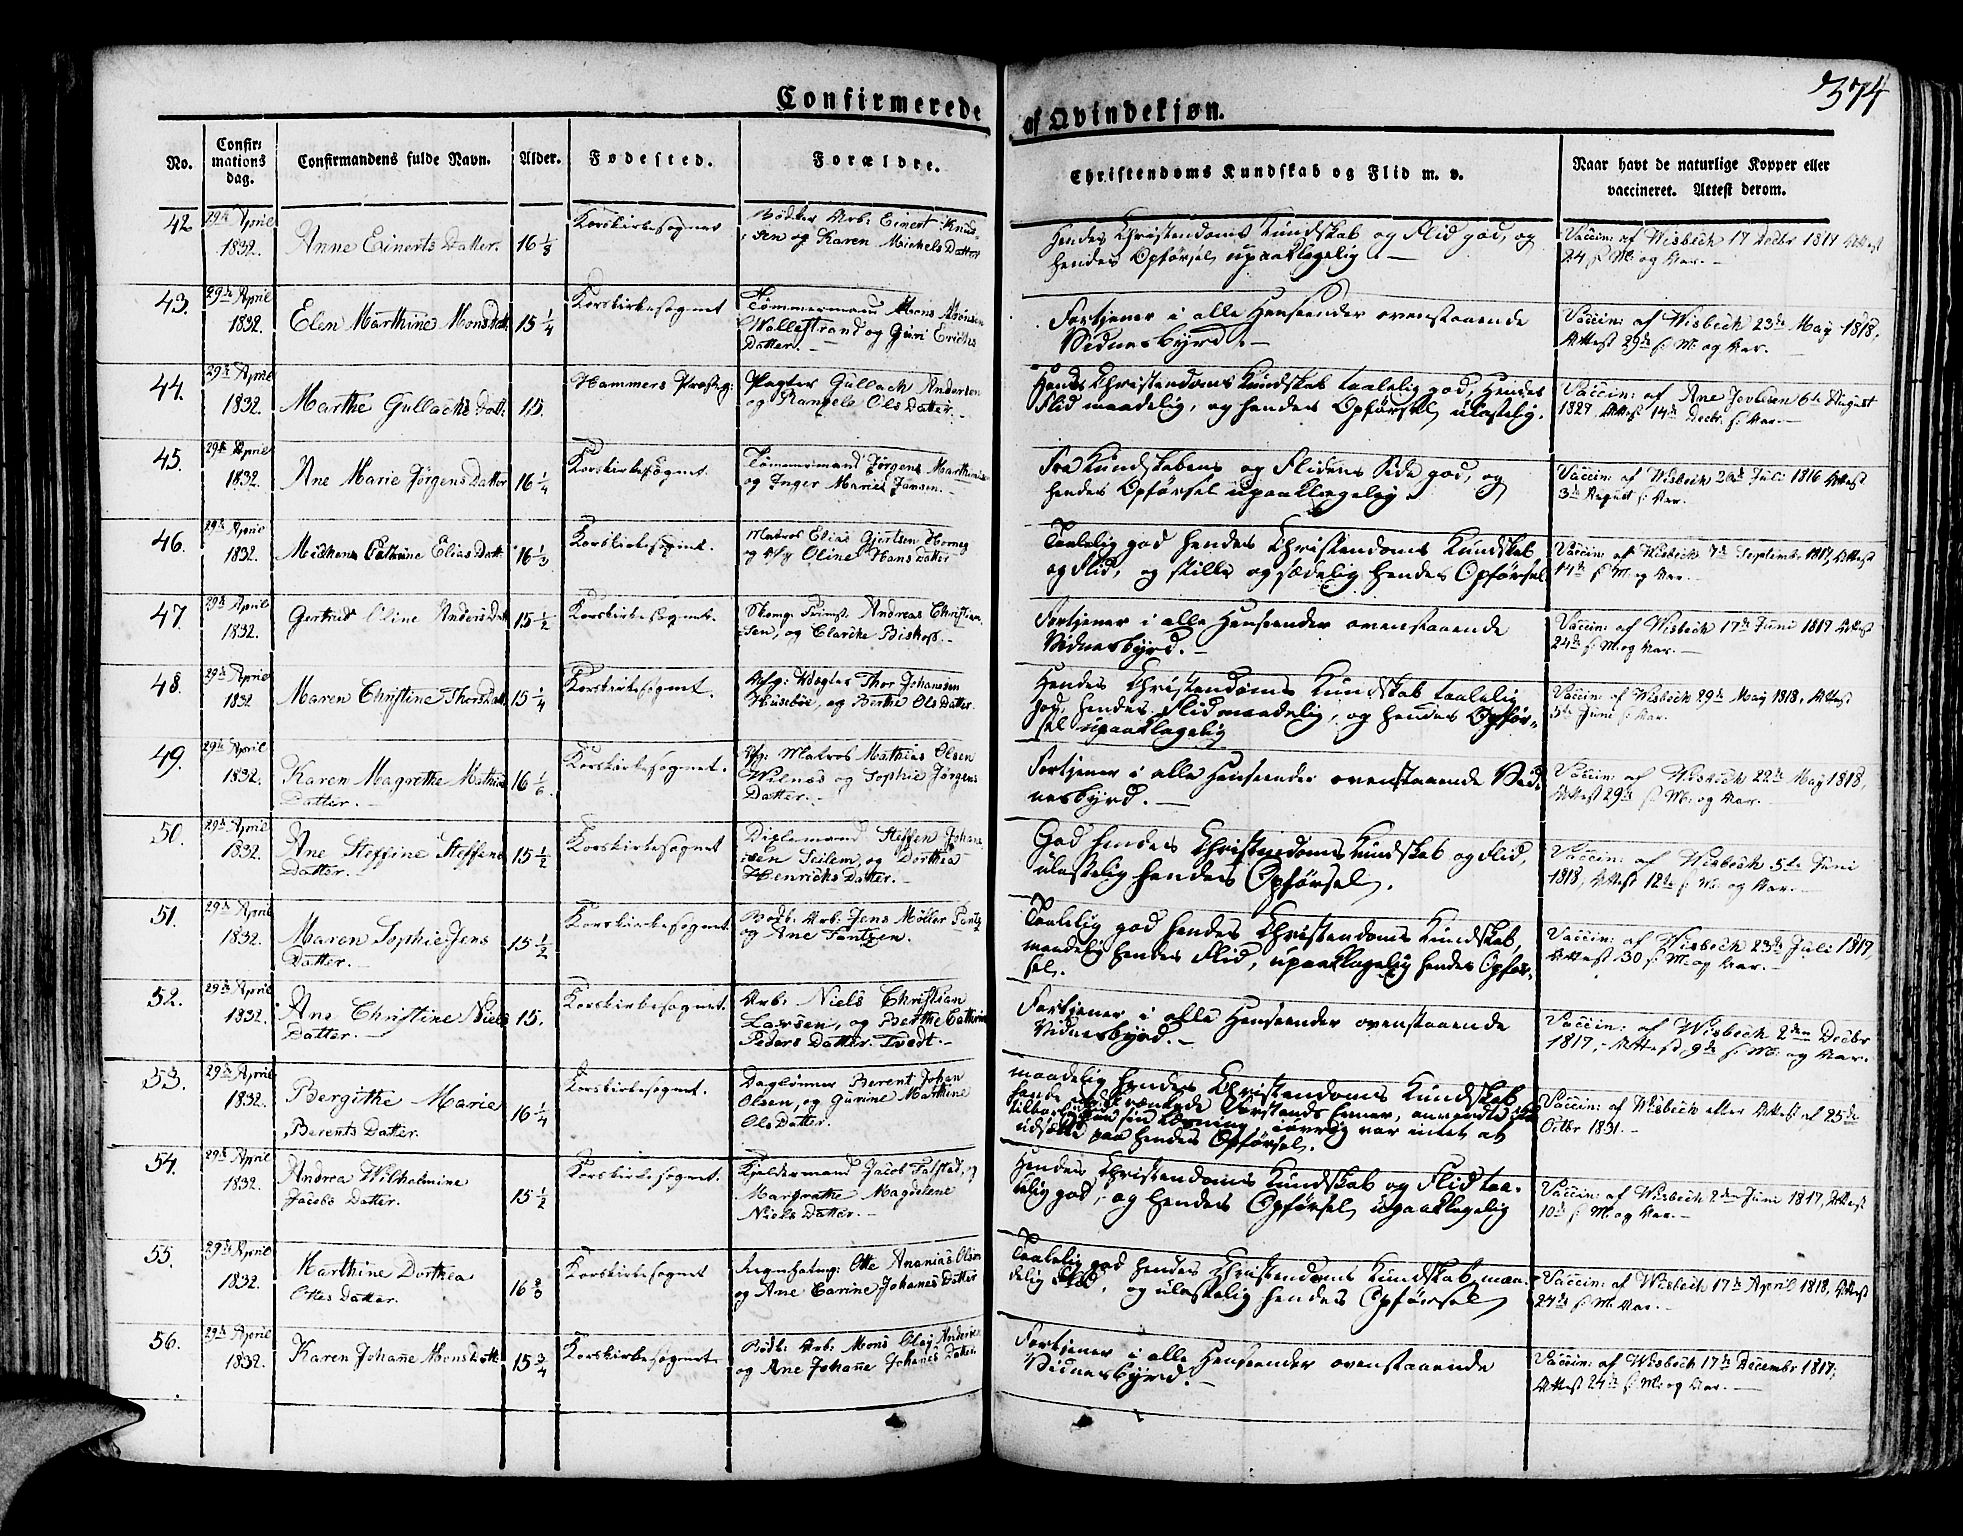 374
Confirmerede af Qvindekjøn.
No.
Confir:
mations
dag.
Confirmandens fulde Navn.
Alder.
Fødested.
Forældre.
Christendoms Kundskab og Flid m. v.
Naar havt de naturlige Kopper eller
vaccineret. Attest derom.
42 29de April
1832.
Anne Einerts Datter. 16 1/3
Korskirkesognet
Bødker Arb: Einert Knud
sen og Karen Michels Datter
Hendes Christendoms Kundskab og Flid god, og
hendes Opførsel upaaklagelig. —
Vaccin: af Wisbech 17 Decbr 1817 Attest
24 s. M. og Aar. —
43. 29de April
1832.
Elen Marthine Mons Datt. 15 1/4
Korskirkesognet
Tømmermand Mons Monsen
Wallestrand og Guri Erichs
Datter. —
Fortjener i alle Henseender ovenstaaende
Vidnesbyrd. —
Vaccin: af Wisbech 23de May 1818,
Attest 29de s. M. og Aar. —
44. 29de April
1832.
Marthe Gullachs Datt. 15.
Hammers Præsteg:
Gullach Andersen
og Rangele Ols Datter. —
Hendes Christendoms Kundskab taalelig god, Hendes
Flid maadelig, og hendes Opførsel ulastelig.
Vaccin: af Ane 6te August
1827 Attest 14de Decbr. s. Aar. —
45. 29de April
1832.
Ane Marie Jørgens Datter 16 1/4
Korskirkesognet.
Tømmermand Jørgen
og Inger Marie Jansen. —
Fra Kundskabens og Flidens Side god, og
hendes Opførsel upaaklagelig
Vaccin af Wisbech 26de Juli 1816 Attest
3de August s. Aar.
46. 29de April
1832.
Cathrine Elias Datt. 16 1/3
Korskirkesognet.
Matros Elias Gjertsen Hornes
og Oline Hans Datter
Taalelig god hendes Christendoms Kundskab
og Flid, og stille og sædelig hendes Opførsel
Vaccin: af Wisbech 7de Septembr 1817, Attest
14de s. M. og Aar. —
47. 29de April
1832.
Gertrud Oline Anders Datt. 15 1/2
Korskirkesognet.
Andreas Christian
sen, og Clareke Biskop. —
Fortjener i alle Henseender ovenstaaende
Vidnesbyrd. —
Vaccin: af Wisbech 17de Juni 1817 Attest
24de s. M. og Aar. —
48. 29de April
1832
Maren Christine Thors Datt. 15 1/4
Korskirkesognet.
Thor Johansen
Husebøe, og Berthe Ols Datter.
Hendes Christendoms Kundskab taalelig
god, hendes Flid maadelig, og hendes Opfør-
sel upaaklagelig
Vaccin: af Wisbech 29de May 1818, Attest
5te Juni s. Aar.
49. 29de April
1832.
Karen Magrethe Mathias
Datter. — 16 1/6
Korskirkesognet.
Matros Mathias Olsen
Wilnæs og Sophie Jørgens
Datter. —
Fortjener i alle Henseender ovenstaaende Vid-
nesbyrd. —
Vaccin: af Wisbech 22de May 1818,
Attest 29de s. M: og Aar. —
50. 29de April
1832.
Ane Steffine Steffens
Datter. — 15 1/2
Korskirkesognet
Steffen Johan
sen Seilem, og Dorthea
Henrichs Datter. —
God hendes Christendoms Kundskab og Flid,
ulastelig hendes Opførsel.
Vaccin: af Wisbech 5te Juni
1818, Attest 12te s. M: og Aar. —
51. 29de April
1832.
Maren Sophie Jens
Datter. — 15 1/2
Korskirkesognet.
Bødk: Arb: Jens Møller
og Ane Fantzen.
Taalelig god hendes Christendoms Kundskab,
maadelig hendes Flid, upaaklagelig hendes Opfør-
sel.
Vaccin: af Wisbech 23de Juli 1819,
Attest 30 s. M. og Aar. —
52. 29de April
1832.
Ane Christine Niels
Datter. — 15.
Korskirkesognet.
Arb: Niels Christian
Larsen, og Berthe Cathrine
Peders Datter Tvedt. —
Fortjener i alle Henseender ovenstaaende
Vidnesbyrd. —
Vaccin: af Wisbech 2den Decbr
1817, — Attest 9de s. M: og Aar. —
53. 29de April
1832.
Bergithe Marie
Berents Datter. 16 1/4
Korskirkesognet.
Daglønner Berent Johan
Olsen, og Gurine Marthine
Ols Datter.
maadelig hendes Christendoms Kundskab,
iøvrig var intet at
udsætte paa hendes Opførsel.
Vaccin: af Wisbech efter Attest af 25de
Octbr 1831. —
54. 29de April
1832.
Andrea Wilhelmine
Jacobs Datter. 15 1/2
Korskirkesognet.
Kjeldermand Jacob Falsted, og
Margrethe Magdelene
Niels Datter. —
Hendes Christendoms Kundskab og Flid taa-
lelig god, og hendes Opførsel upaaklagelig
Vaccin: af Wisbech 2den Juni 1817, Attest
10de s. M. og Aar. —
55. 29de April
1832.
Marthine Dorthea
Ottes Datter. 16 2/3
Korskirkesognet
Otte Ananias Olsen
og Ane Carine Johanes Datter
Taalelig god hendes Christendoms Kundskab, maa-
delig Flid, og ulastelig hendes Opførsel
Vaccin: af Wisbech 17de April 1818, Attest
24de s. M. Aar. —
56. 29de April
1832.
Karen Johañe Mons Datt. 15 3/4
Korskirkesognet.
Bødk: Arb: Mons Olaj Andersen
og Ane Johañe Johanes Datter.
Fortjener i alle Henseender ovenstaaende
Vidnesbyrd. —
Vaccin: af Wisbech 17de Decembr 1817,
Attest 24de s. M. og Aar. —